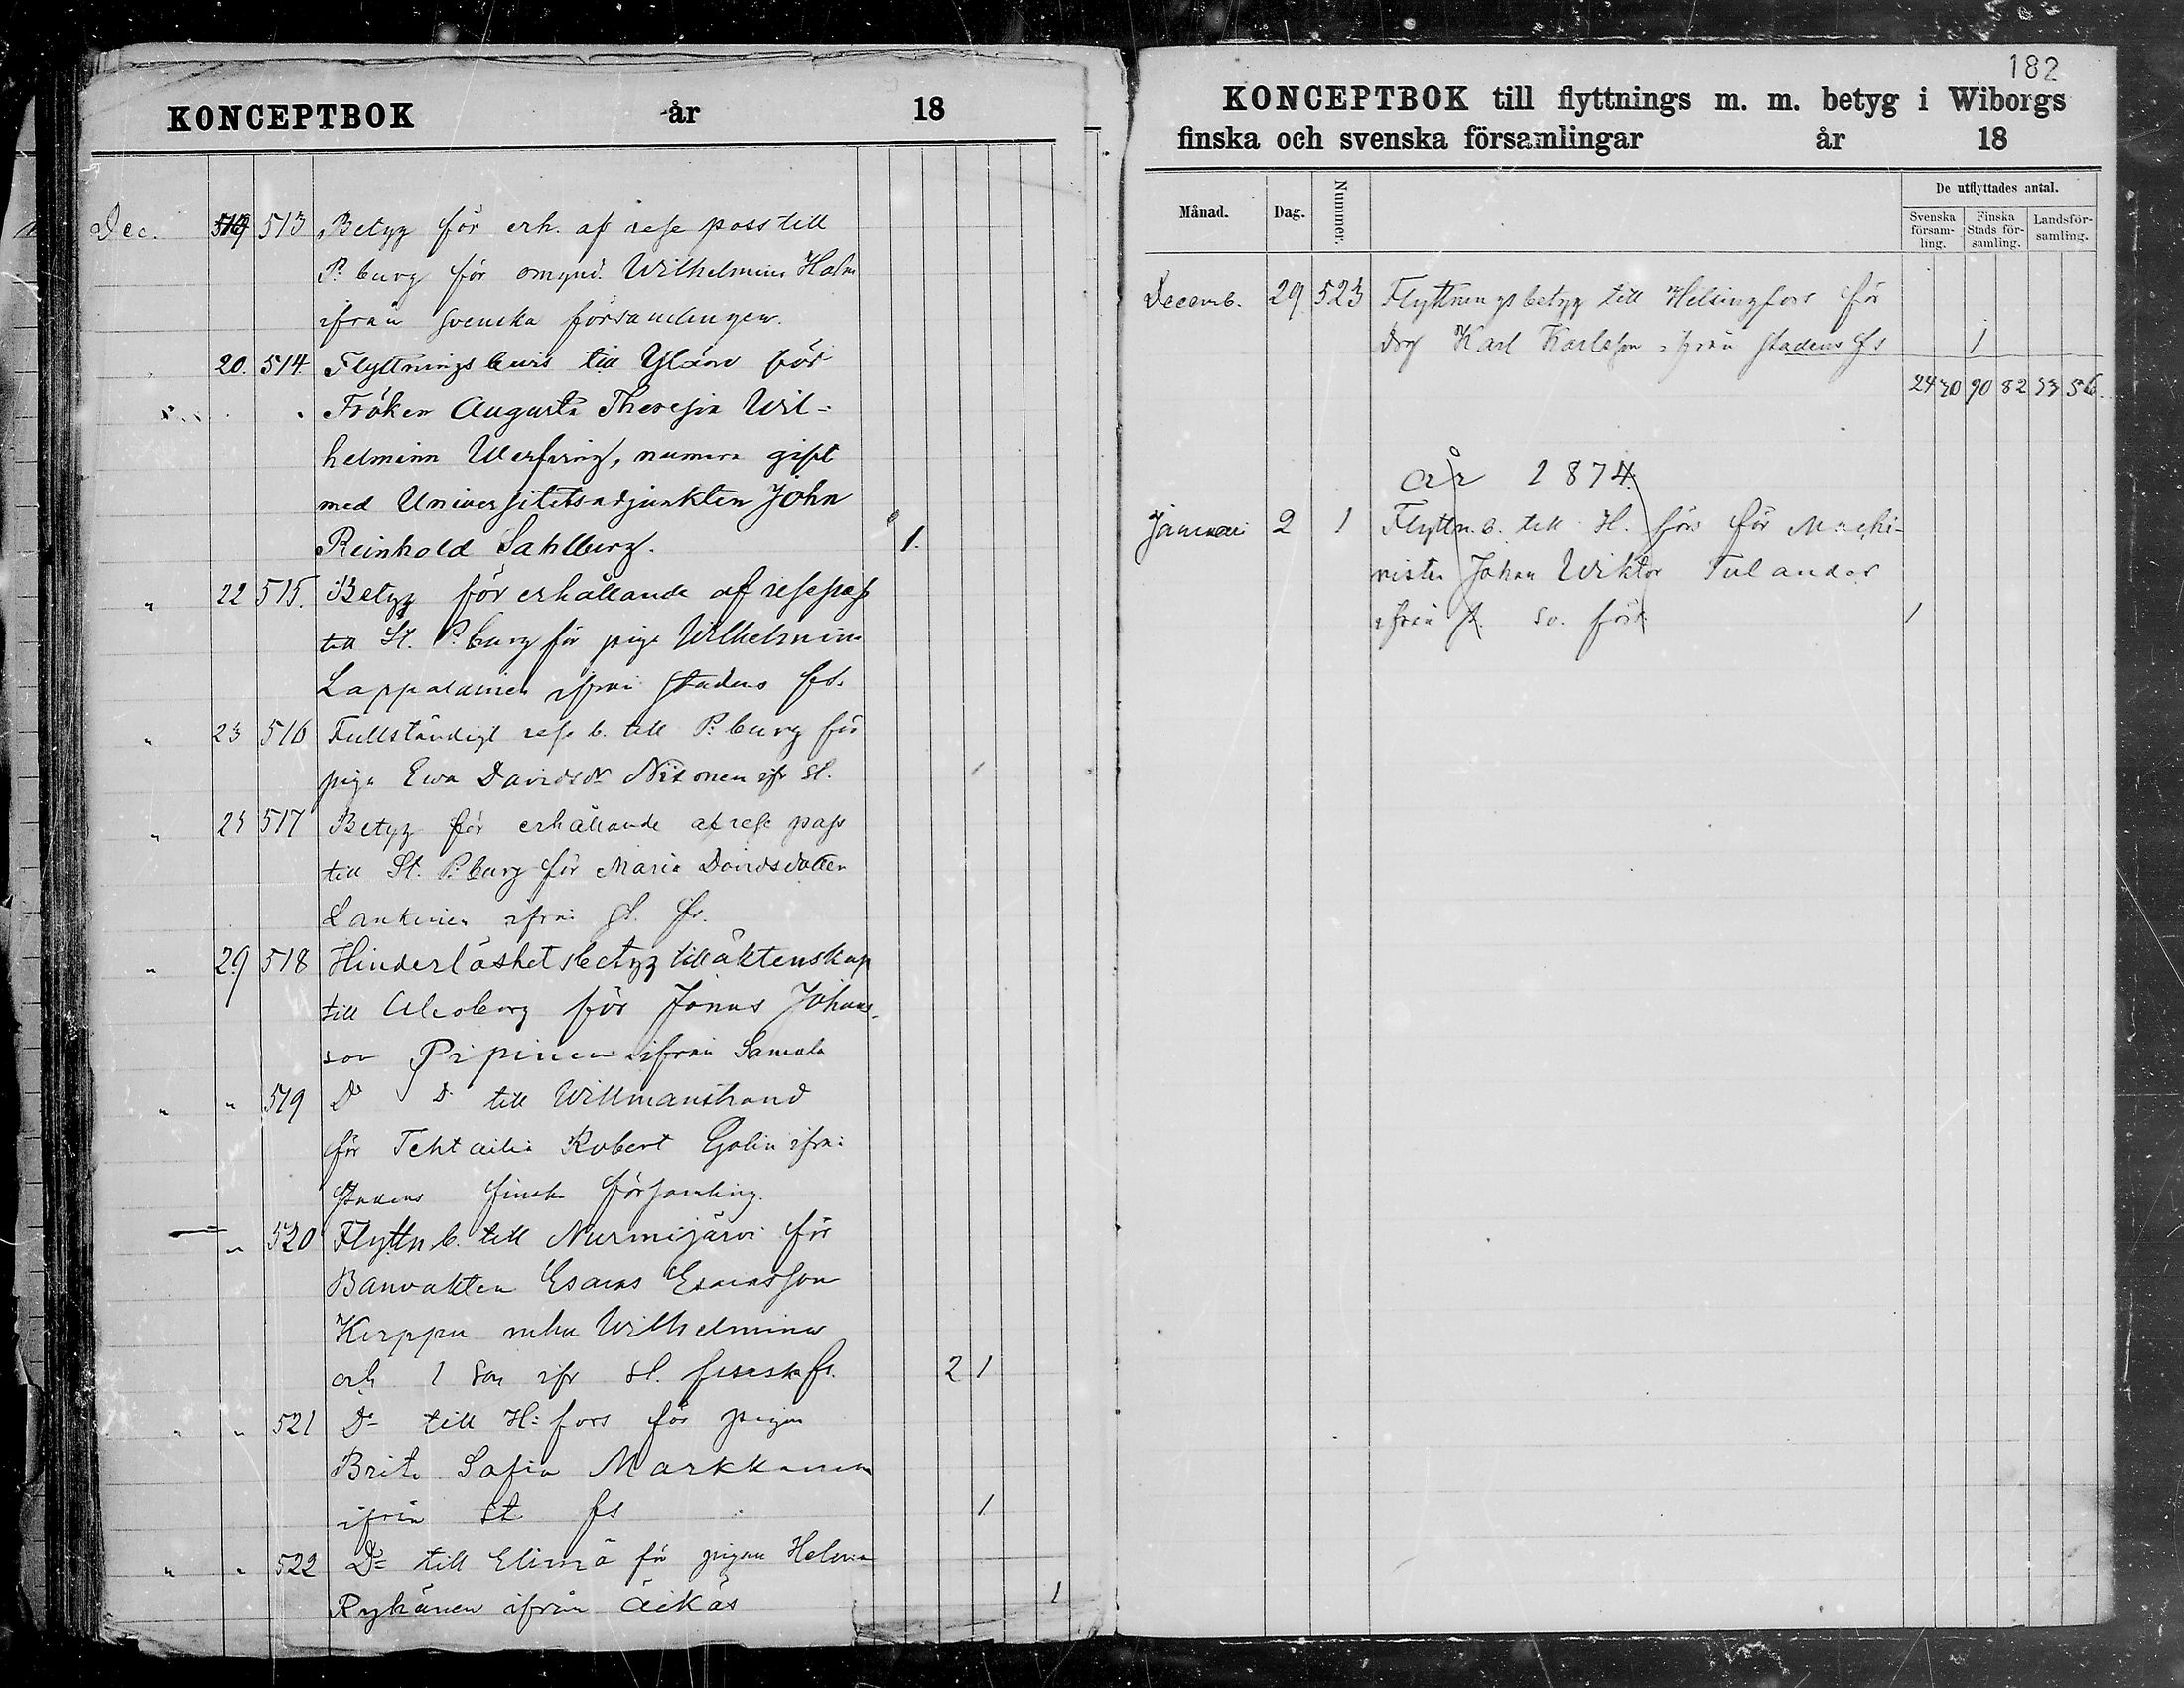 KONCEPTBOK år 18
Dec. 19 513 Betyg för erh. af rese pass till
P:burg för omynd. Wilhelmina Holm
ifrån svenska församlingen.
20. 514. Flyttningsbevis till Yläne för
Fröken Augusta Theresia Wil-
helmina Werfving, numera gift
med Universitetsadjunkten John
Reinhold Sahlberg. 1.
" 22 515. Betyg för erhållande af resepass
till St. P:burg för piga Wilhelmina
Lappalainen ifrån stadens fs.
" 23 516 Fullständigt rese b. till P:burg för
piga Ewa Davidsdr ifr st. 1
" 23 517 Betyg för erhållande af rese pass
till St. P:burg för Maria Davidsdotter
Lankinen ifrån st. fs.
" 29 518 Hinderlöshetsbetyg till äktenskap
till Uleoborg för Jonas Johans-
son Pipinen ifrån Samola
" " 519 Do Do till Willmanstrand
för Robert Golin ifrån
stadens finska församling.
" 520 Flyttn b. till Nurmijärvi för
Banvakten Esaias Esaiasson
Kirppu mhu Wilhelmina
och 1 son ifr st. finska fs. 2 1
" " 521 Do till H:fors för pigan
Brita Sofia Markkanen
ifrån st fs 1
" " 522 Do till Elimä för pigan Helena
Rykänen ifrån Äikäs 1
182
KONCEPTBOK till flyttnings m. m. betyg i Wiborgs
finska och svenska församlingar år 18
Månad. Dag. Nummer. De utflyttades antal.
Svenska försam-ling. Finska Stads för-samling. Landsför-samling.
Decemb. 29 523 Flyttningsbetyg till Helsingfors för
drg Karl Karlsson ifrån stadens fs 1
24 30 90 82 53 56.
år 1874.
Januari 2 1 Flyttn. b. till H. fors för Machi-
nisten Johan Wiktor Tulander
ifrån st. sv. förs. 1